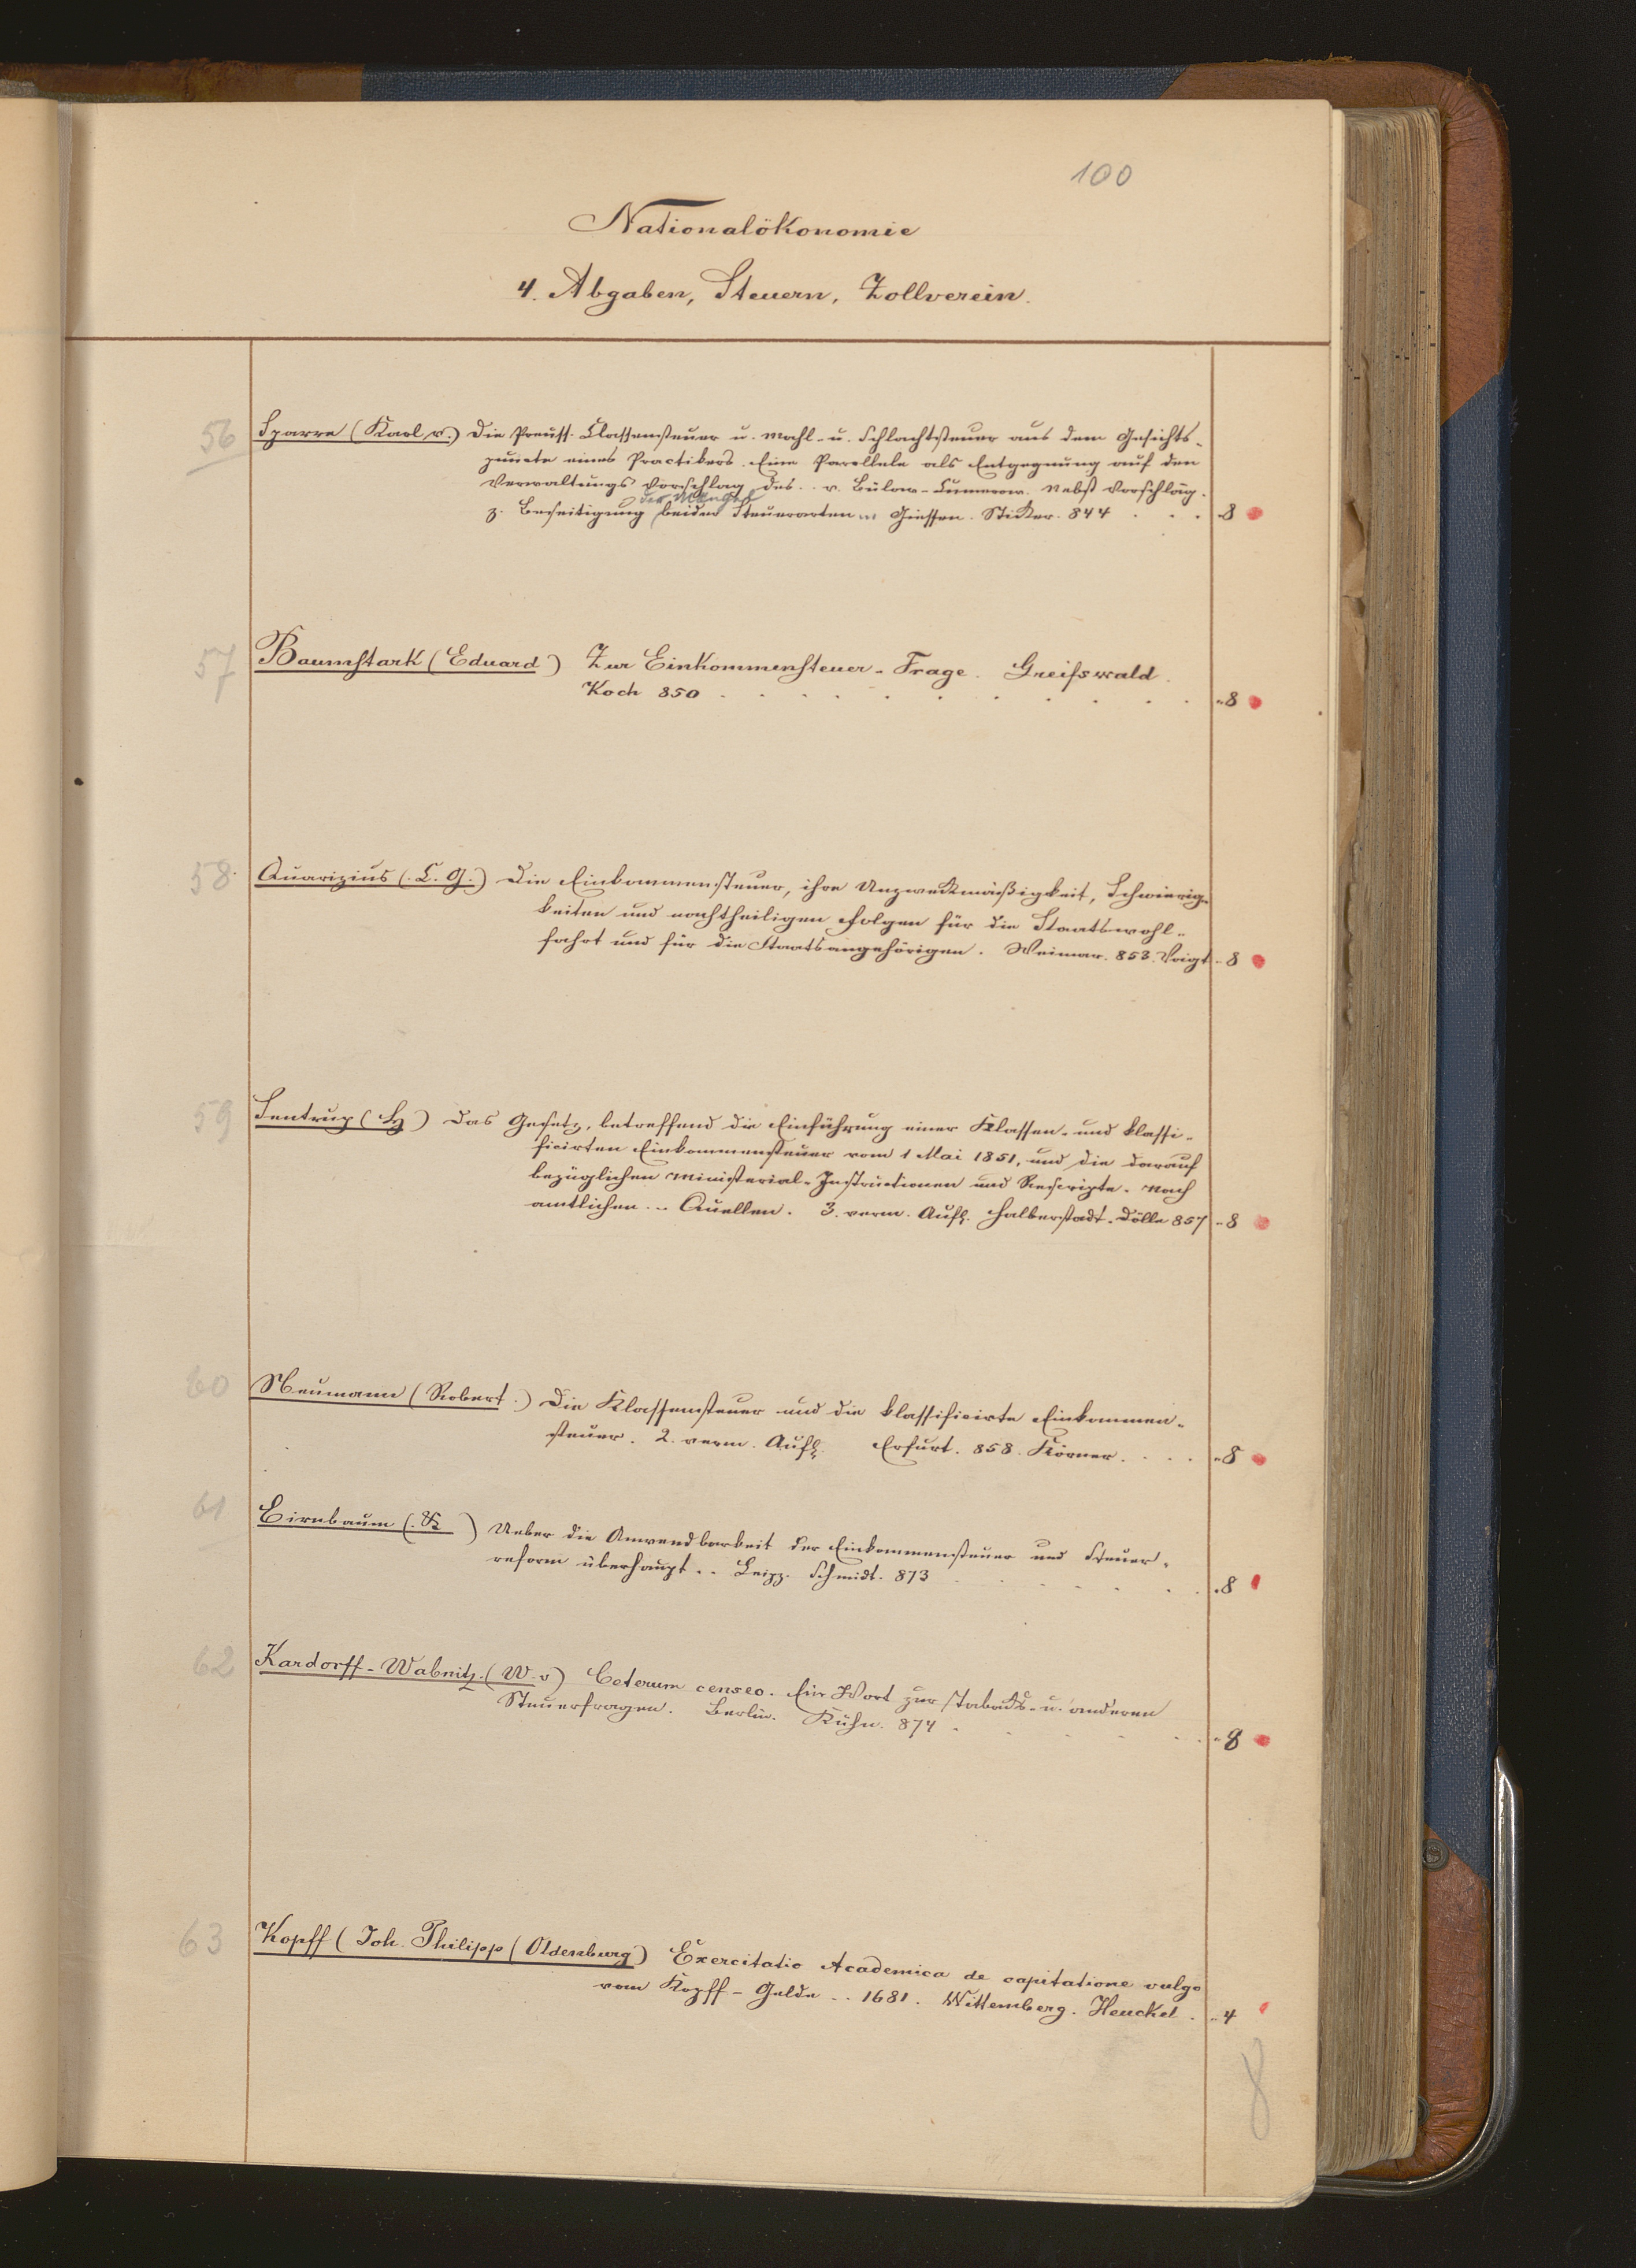 100
Nationalökonomie
4. Abgaben, Steuern, Zollverein.
56
Sparre (Karl v.) Die Preuss. Classensteuer u. Mahl- u. Schlachtsteuer aus dem Gesichts-
puncte eines Practikers. Eine Parellele als Entgegnung auf den
Verwaltungs Vorschlag des .. v. Bülow-Cumerow. Nebst Vorschläg.
der Mängel
z. Beseitigung beider Steuerarten ... Giessen. Sticker. 844 . . . 8
57
Baumstark (Eduard) Zur Einkommensteuer-Frage. Greifswald.
Koch 850 . . . . . . . . . . „8
58.
Quarizius (. C. G.) Die Einkommensteuer, ihre Unzweckmäßigkeit, Schwierig-
keiten und nachtheiligen Folgen für die Staatswohl-
fahrt und für die Staatsangehörigen. Weimar. 853. Voigt „8
59
Sentrup ( ) Das Gesetz, betreffend die Einführung einer Klassen- und klassi-
ficirten Einkommensteuer vom 1 Mai 1851, und die darauf
bezüglichen Ministerial-Instructionen und Rescripte. Nach
amtlichen .. Quellen. 3. verm. Aufl. Halberstadt. Dölle 857 „8
60
Neumann (Robert.) Die Klassensteuer und die klassificirte Einkommen-
steuer. 2. verm. Aufl. Erfurt. 858. Körner. . . . „8
61
Birnbaum (. K ) Ueber die Anwendbarkeit der Einkommensteuer und Steuer-
reform überhaupt .. Leipz. Schmidt. 873 . . . . . . „8
62
Kardorff-Wabnitz. (W. v) Ceterum censeo. Ein Wort zur Tabacks- u. anderen
Steuerfragen. Berlin. Kühn. 874 . . . . . „8
63
Kopff (Joh. Philipp (Oldenburg) Exercitatio Academica de capitatione vulgo
vom Kopff-Gelde .. 1681. Wittemberg. Henckel . „4
8